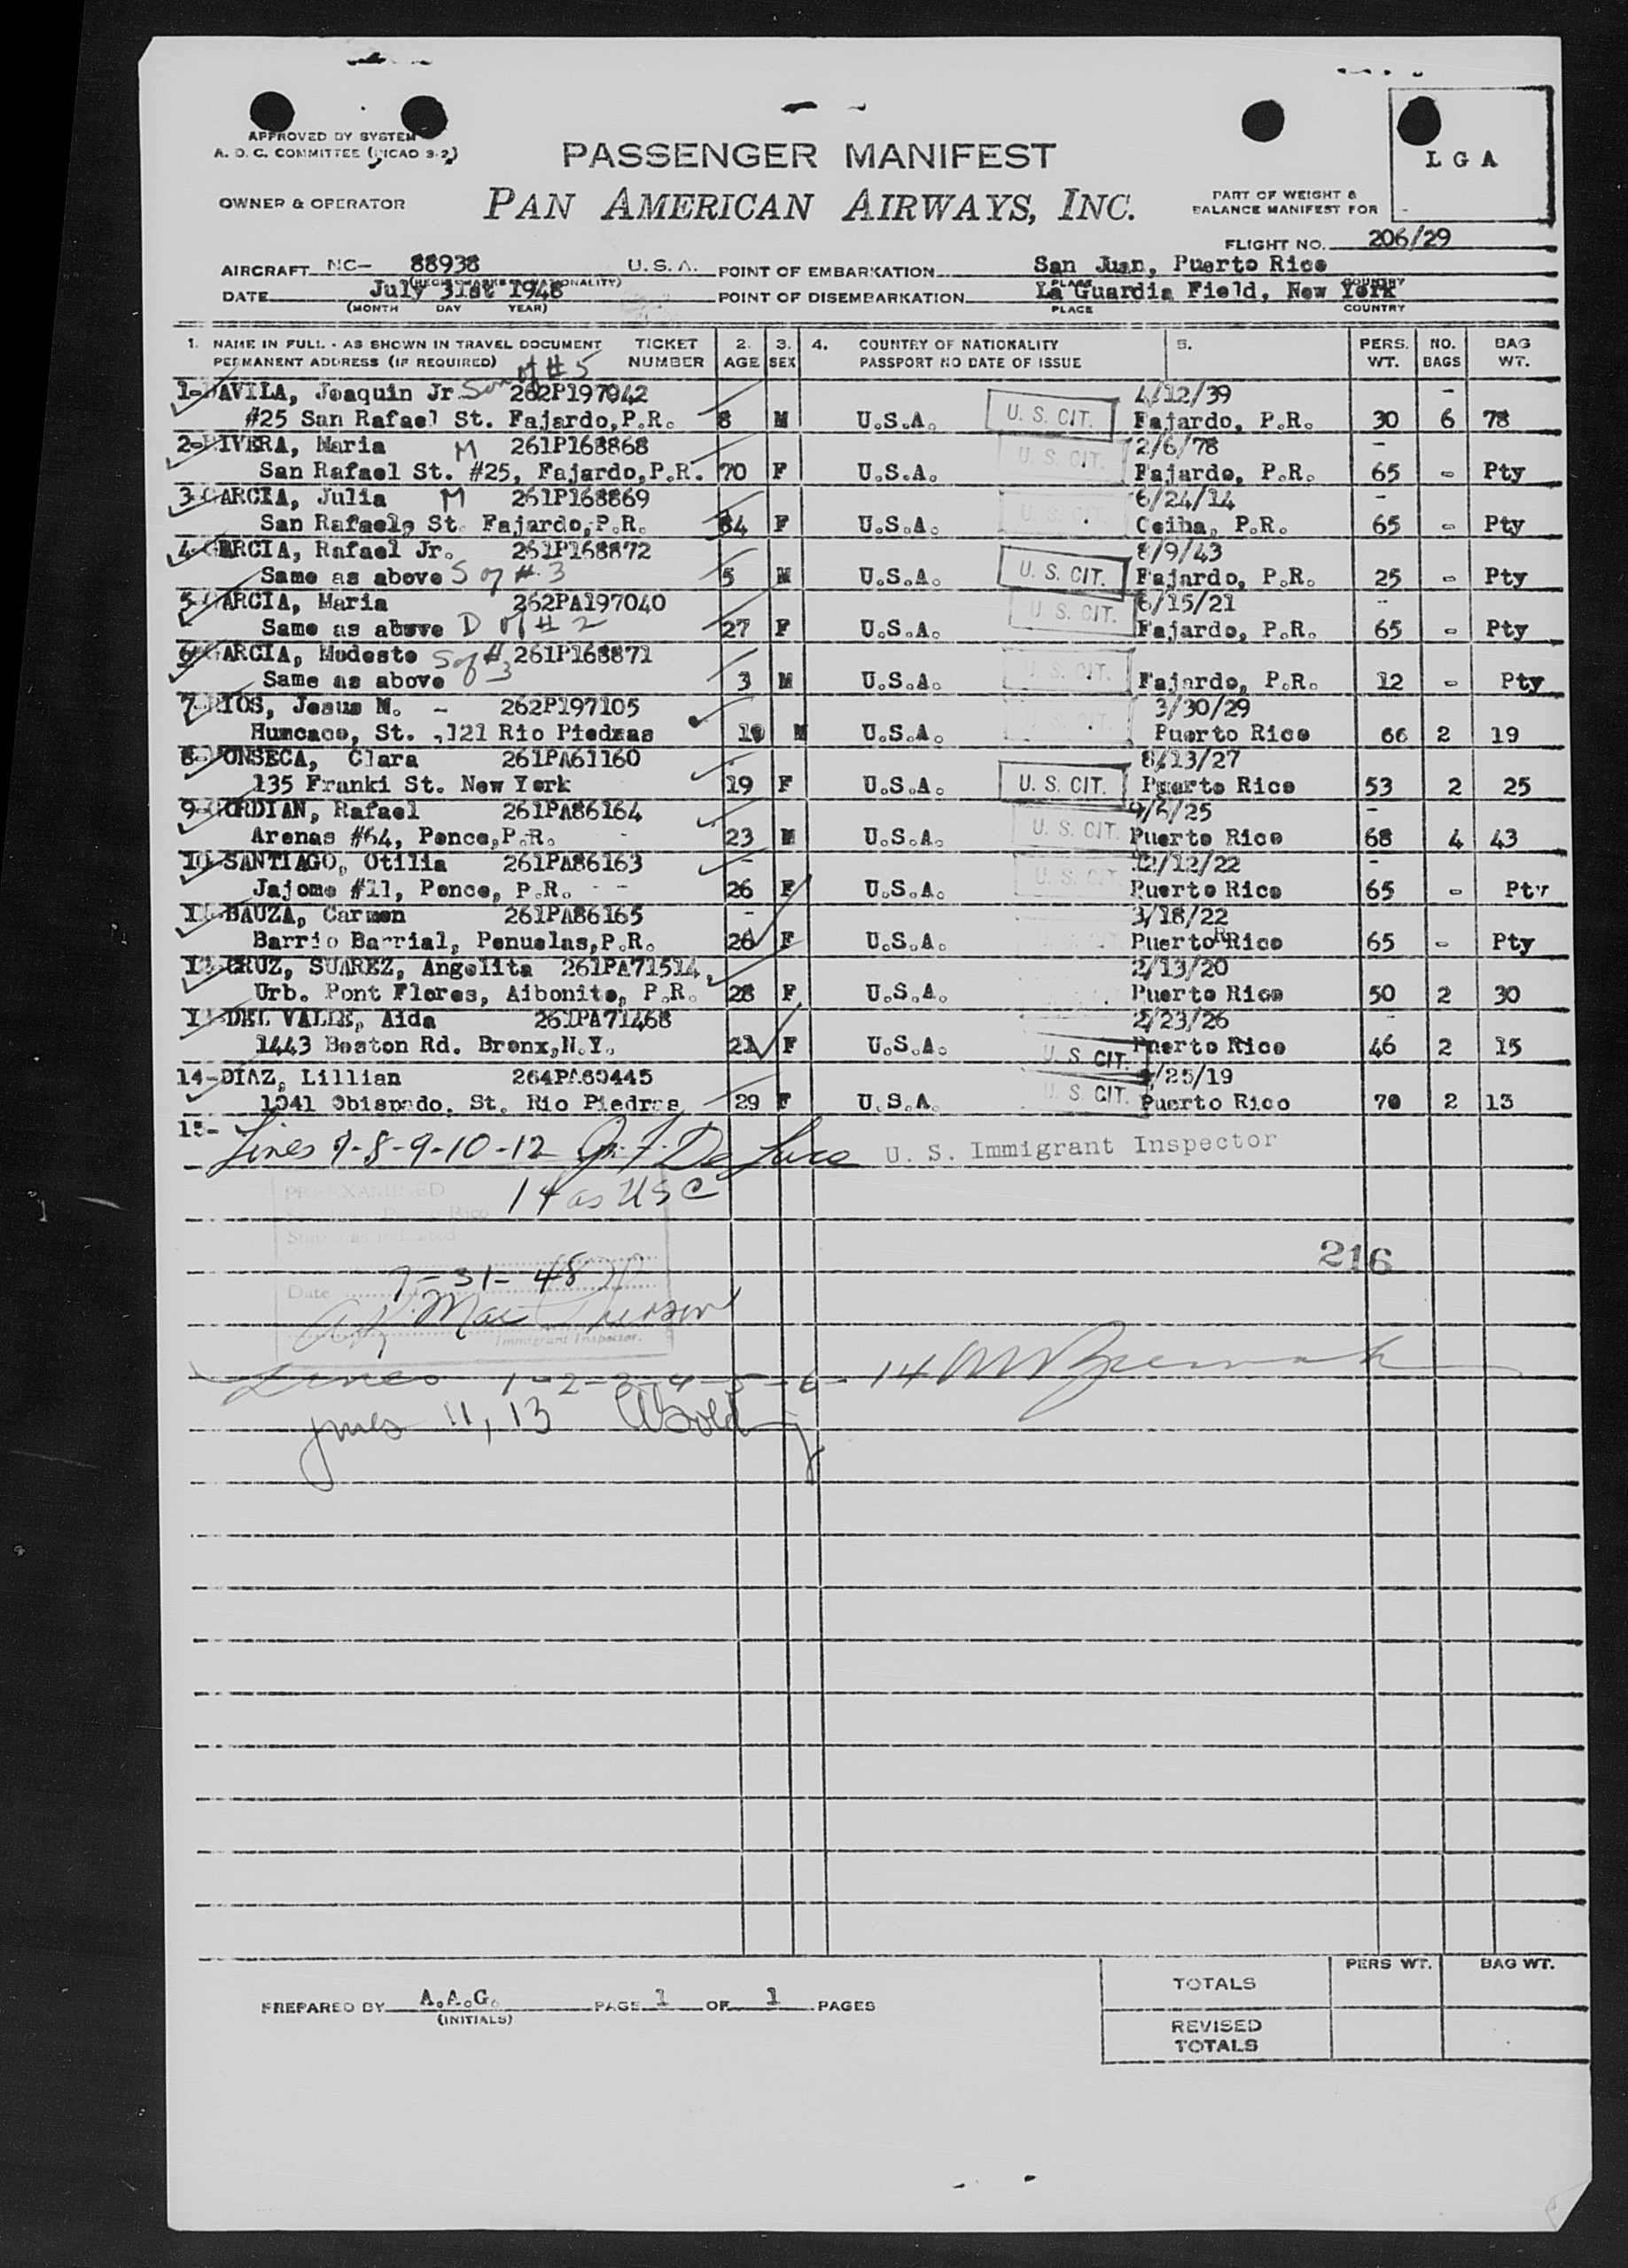 APPROVED BY SYSTEM
A. O. C. COMMITTEE (ICAO 9-2)
PASSENGER MANIFEST
LGA
OWNER & OPERATOR
PAN AMERICAN AIRWAYS, INC.
PART OF WEIGHT &
BALANCE MANIFEST FOR
FLIGHT NO. 206/29
AIRCRAFT NC- 88938 U.S.A. POINT OF EMBARKATION San Juan, Puerto Rico
DATE July 31st 1948 POINT OF DISEMBARKATION La Guardia Field, New York
(MONTH DAY YEAR) PLACE COUNTRY
1. NAME IN FULL - AS SHOWN IN TRAVEL DOCUMENT TICKET 2. 3. 4. COUNTRY OF NATIONALITY 5. PERS. NO. BAG
PERMANENT ADDRESS (IF REQUIRED) NUMBER AGE SEX PASSPORT NO DATE OF ISSUE WT. BAGS WT.
Son of #5
1-DAVILA, Joaquin Jr. 262P197042 4/12/39 -
#25 San Rafael St. Fajardo,P.R. 8 M U.S.A. U. S. CIT. Fajardo, P.R. 30 6 78
2-RIVERA, Maria M 261P168868 2/6/78 -
San Rafael St. #25, Fajardo,P.R. 70 F U.S.A. U. S. CIT. Fajardo, P.R. 65 - Pty
3-GARCIA, Julia M 261P168869 6/24/14 -
San Rafael, St. Fajardo,P.R. 34 F U.S.A. U. S. CIT. Ceiba, P.R. 65 - Pty
4-GARCIA, Rafael Jr. 261P168872 8/9/43
Same as above S of #3 5 M U.S.A. U. S. CIT. Fajardo, P.R. 25 - Pty
5-GARCIA, Maria 262PA197040 6/15/21 -
Same as above D of #2 27 F U.S.A. U. S. CIT. Fajardo, P.R. 65 - Pty
6-GARCIA, Modesto S of #3 261P168871
Same as above 3 M U.S.A. U. S. CIT. Fajardo, P.R. 12 - Pty
7-RIOS, Jesus M. - 262P197105 3/30/29
Humcaco, St. ,121 Rio Piedras 19 M U.S.A. Puerto Rico 66 2 19
8-FONSECA, Clara 261PA61160 8/13/27
135 Franki St. New York 19 F U.S.A. U. S. CIT. Puerto Rico 53 2 25
9-GORDIAN, Rafael 261PA86164 9/6/25 -
Arenas #64, Ponce,P.R. 23 M U.S.A. U. S. CIT. Puerto Rico 68 4 43
10-SANTIAGO, Otilia 261PA86163 12/12/22 -
Jajome #11, Ponce, P.R. 26 F U.S.A. U. S. CIT. Puerto Rico 65 - Pty
11-BAUZA, Carmen 261PA86165 3/18/22
Barrio Barrial, Penuelas,P.R. 26 F U.S.A. Puerto Rico 65 - Pty
12-CRUZ, SUAREZ, Angelita 261PA71514 2/13/20
Urb. Pont Flores, Aibonito, P.R. 28 F U.S.A. Puerto Rico 50 2 30
13-DEL VALLE, Aida 261PA71468 2/23/26
1443 Boston Rd. Bronx,N.Y. 21 F U.S.A. U. S. CIT. Puerto Rico 46 2 15
14-DIAZ, Lillian 264PA60445 /25/19
1041 Obispado, St. Rio Piedras 29 F U.S.A. U. S. CIT. Puerto Rico 70 2 13
15-
Lines 7-8-9-10-12 De Luca U. S. Immigrant Inspector
14 as USC
Date 7-31-48
Immigrant Inspector.
216
Lines 1-2-3-4-5-6-14
Lines 11, 13
PERS WT. BAG WT.
TOTALS
PREPARED BY A.A.G. PAGE 1 OF 1 PAGES
(INITIALS)
REVISED
TOTALS